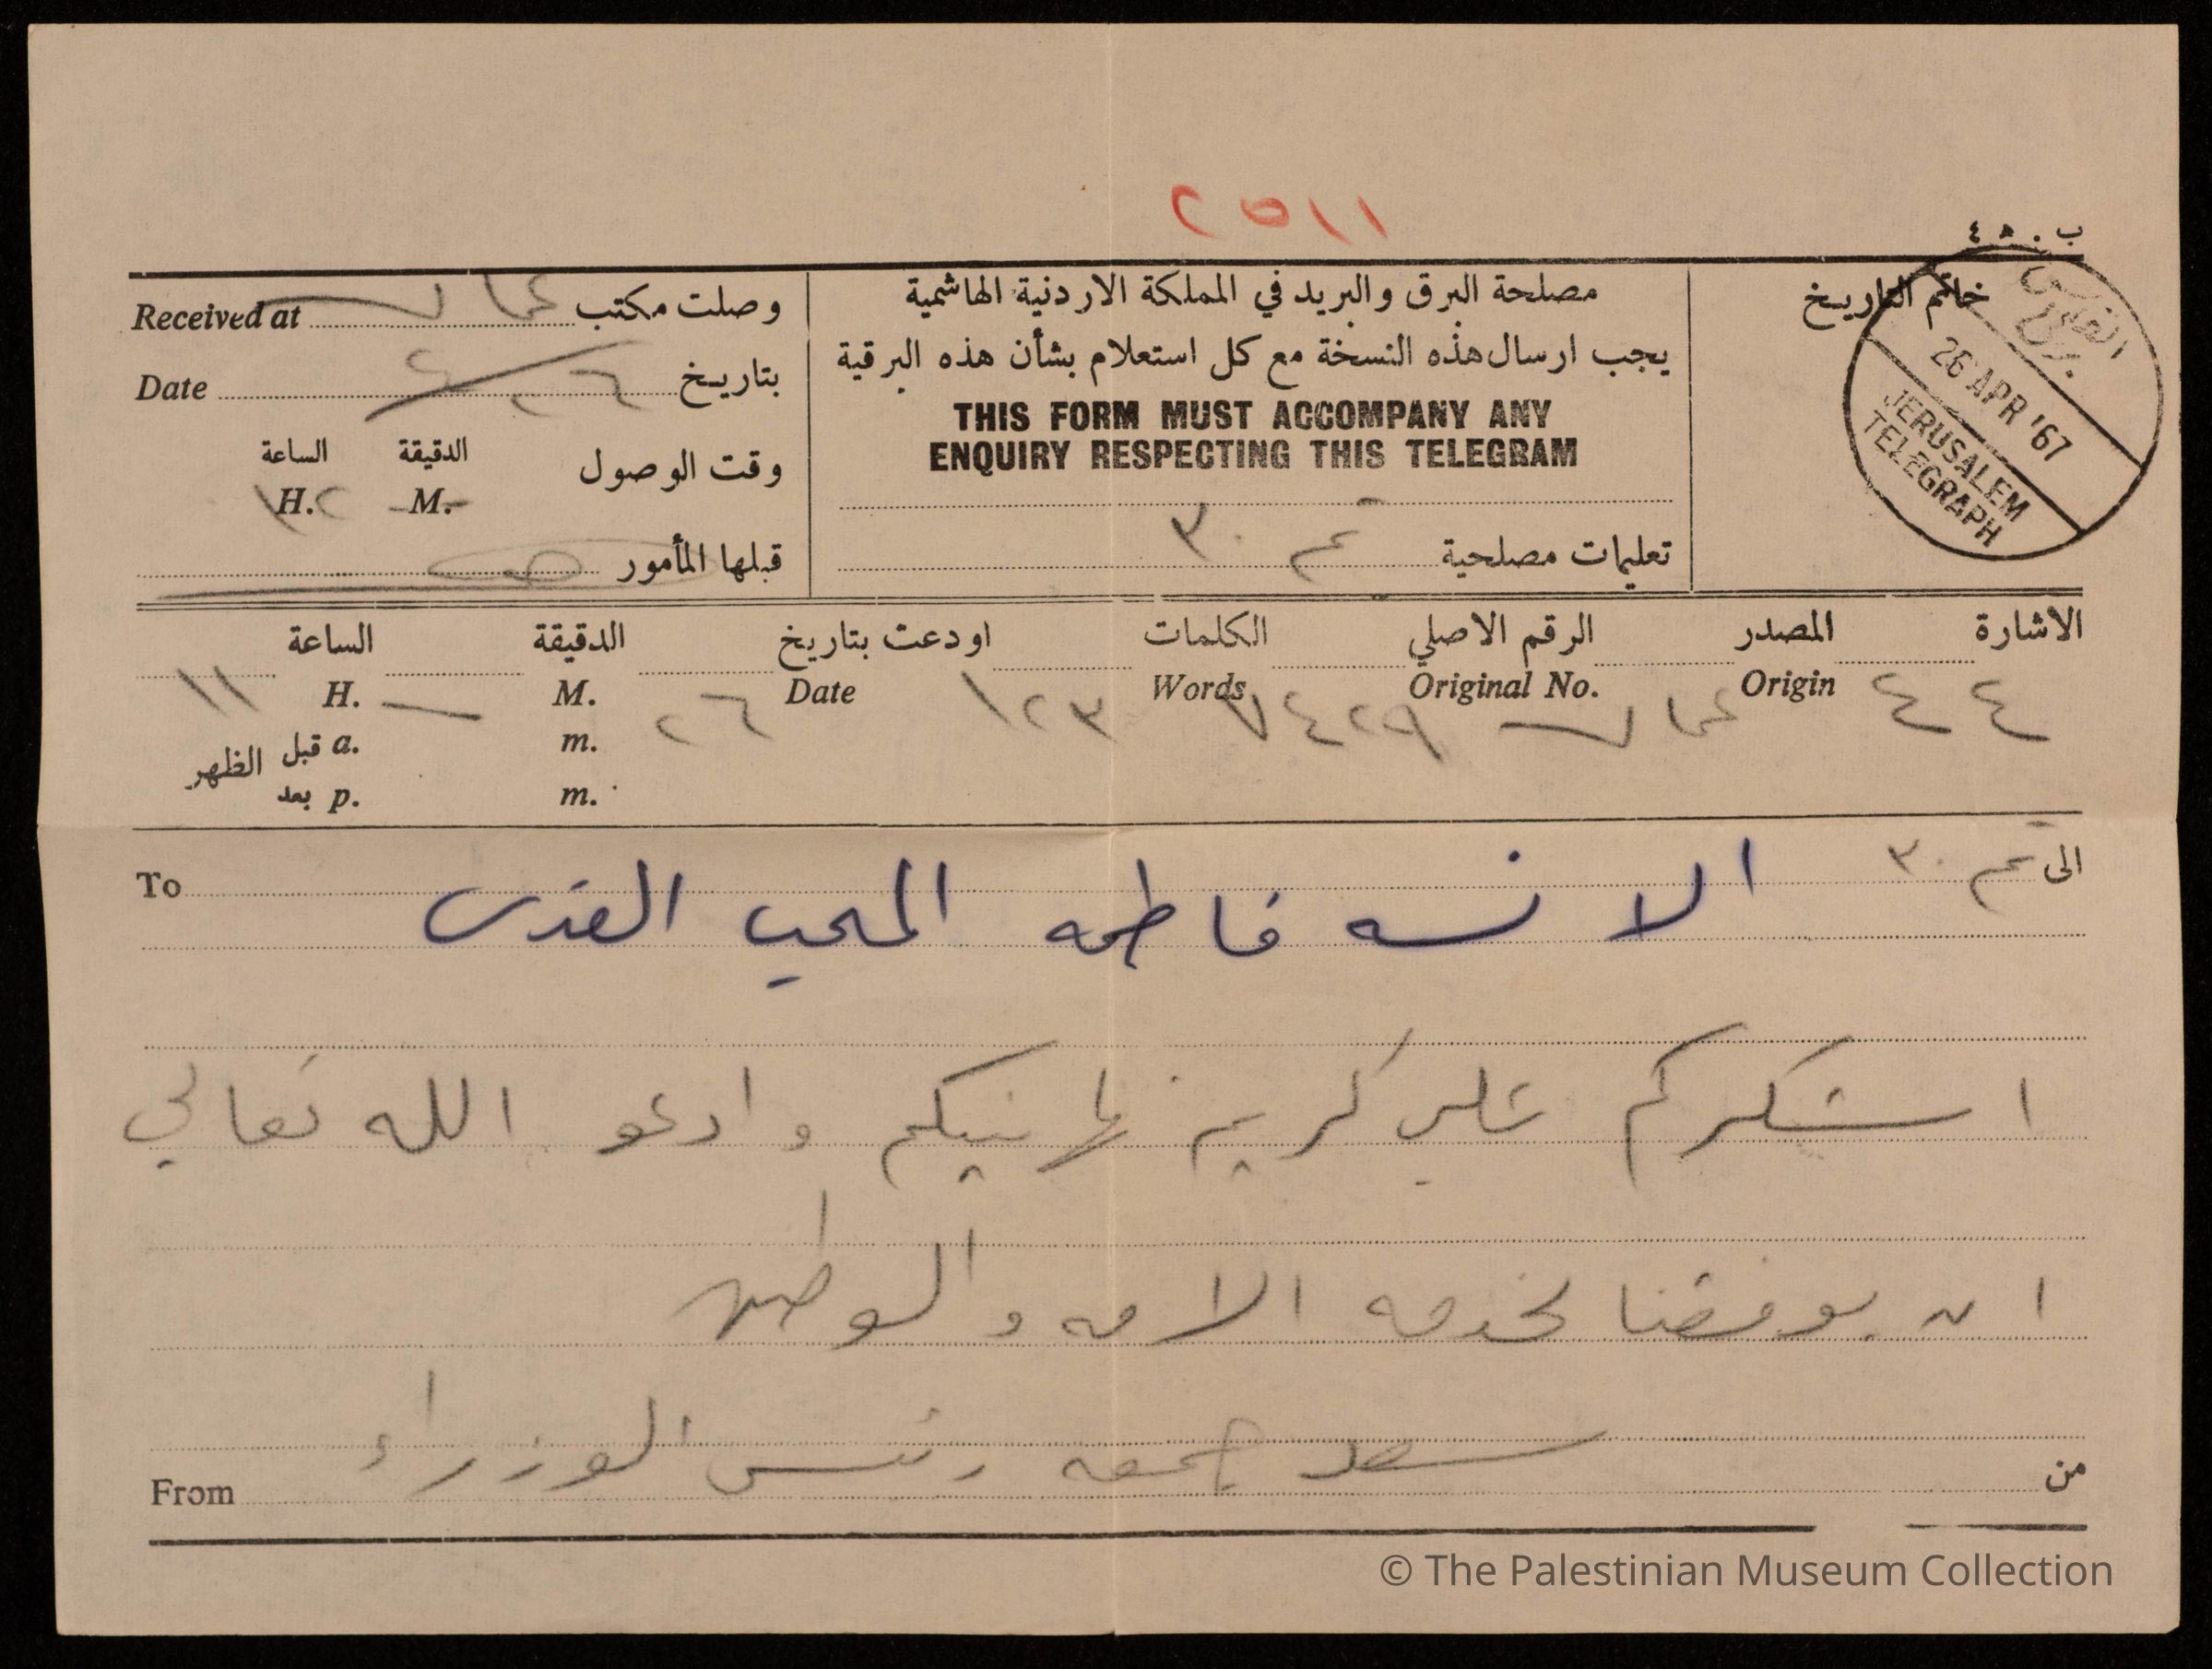 ١١٥٢
ب. ٤٥
خاتم التاريخ
القدس
برق
26 APR '67
JERUSALEM
TELEGRAPH
مصلحة البرق والبريد في المملكة الاردنية الهاشمية
يجب ارسال هذه النسخة مع كل استعلام بشأن هذه البرقية
THIS FORM MUST ACCOMPANY ANY
ENQUIRY RESPECTING THIS TELEGRAM
تعليمات مصلحية ٣٠
وصلت مكتب عمان Received at
بتاريخ ٢٦ ٤ Date
وقت الوصول الدقيقة الساعة
M. — H. ١٢
قبلها المأمور
الاشارة المصدر الرقم الاصلي الكلمات اودعت بتاريخ الدقيقة الساعة
٤٤ Origin عمان Original No. ٧٤٢٩ Words ١٢٣ Date ٢٦ M. — H. ١١
قبل a. m.
الظهر
بعد p. m.
الى ٣٠ To
الانسه فاطمه المحب القدس
اشكركم على كريم تهانيكم وادعو الله تعالى
ان يوفقنا لخدمه الامه والوطن
من سعد جمعه رئيس الوزراء From
© The Palestinian Museum Collection